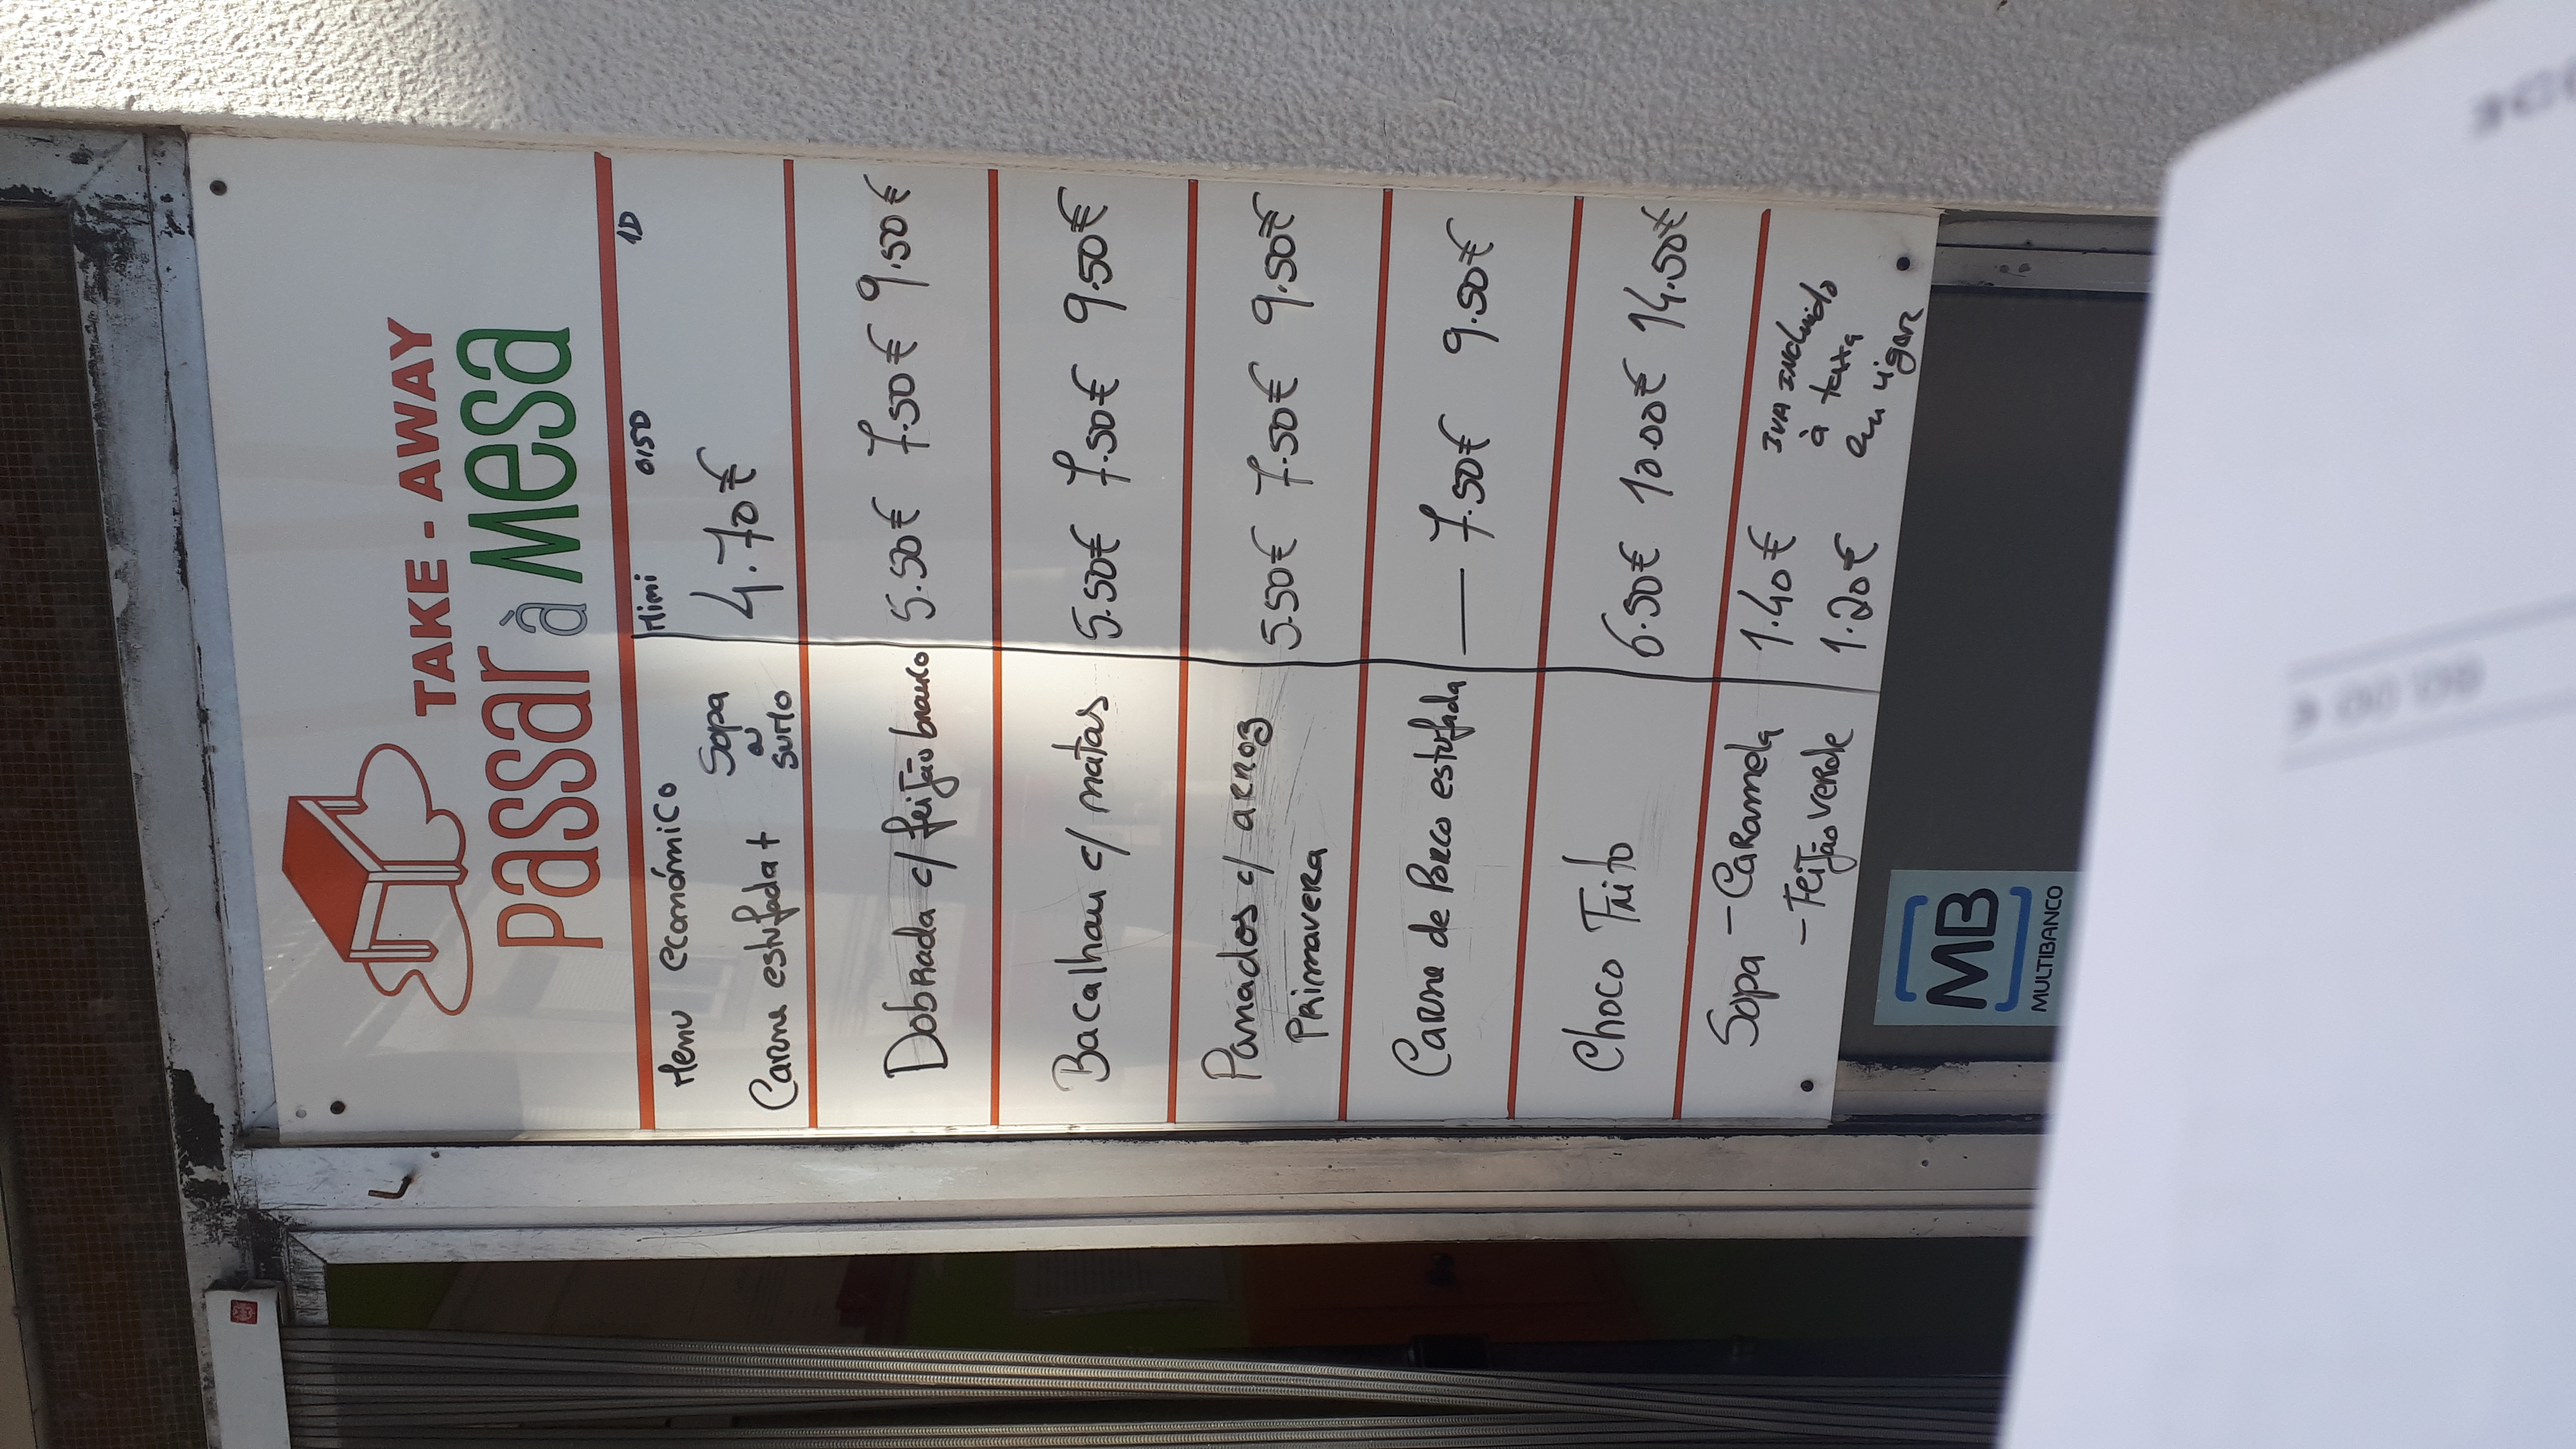 TAKE - AWAY
Passar à Mesa
Mini 0,5D 1D
Menu económico
Carne estufada + Sopa
ou
sumo
4.70€
Dobrada c/ feijão branco 5.50€ 7.50€ 9.50€
Bacalhau c/ natas 5.50€ 7.50€ 9.50€
Panados c/ arroz 5.50€ 7.50€ 9.50€
Primavera
Carne de Porco estufada — 7.50€ 9.50€
Choco Frito 6.50€ 10.00€ 14.50€
Sopa - Caramela 1.40€
- Feijão verde 1.20€
IVA incluido
à taxa
em vigor
MB
MULTIBANCO